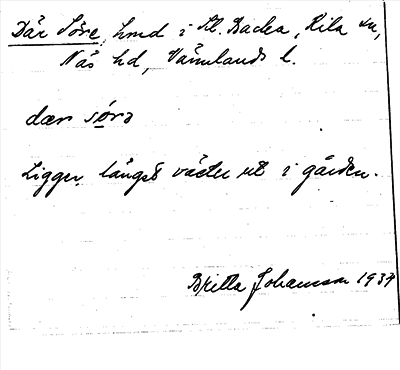 Där Söre, hmd i St. Backa, Kila sn,
Näs hd, Värmlands l.
dær sørə
Ligger längst väster ut i gården.
Britta Johansson 1937